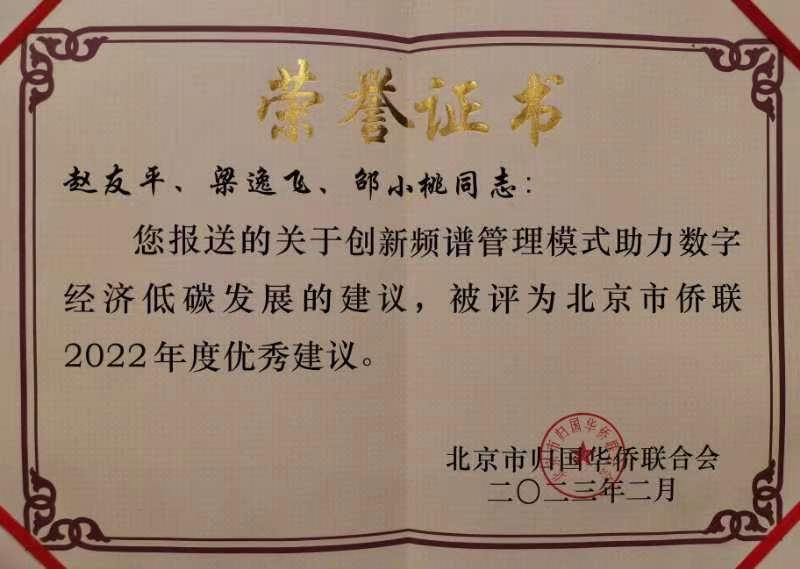 荣誉证书
赵友平、梁逸飞、邵小桃同志：
您报送的关于创新频谱管理模式助力数字
经济低碳发展的建议，被评为北京市侨联
2022年度优秀建议。
北京市归国华侨联合会
二〇二三年二月